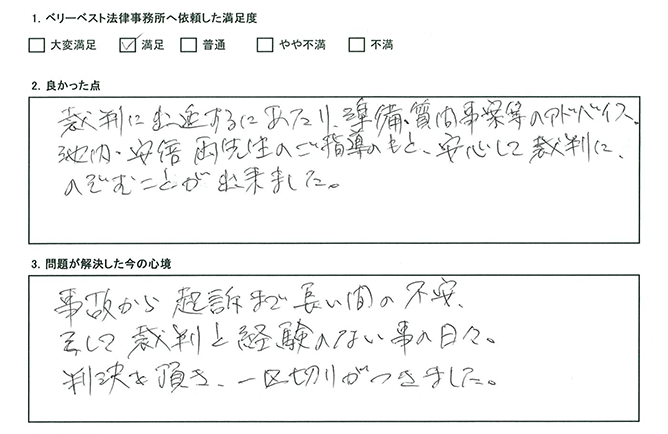 1. ベリーベスト法律事務所へ依頼した満足度
□大変満足 ☑満足 □普通 □やや不満 □不満
2. 良かった点
裁判に出廷するにあたり、準備、質問事案等のアドバイス。
池内・安倍両先生のご指導のもと、安心して裁判に、
のぞむことが出来ました。
3. 問題が解決した今の心境
事故から起訴まで長い間の不安、
そして裁判と経験のない事の日々。
判決を頂き、一区切りがつきました。